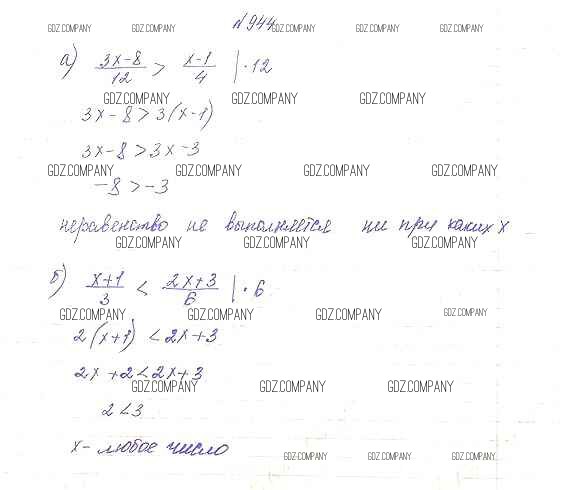 №944
GDZ.COMPANY GDZ.COMPANY GDZ.COMPANY GDZ.COMPANY
а) (3x-8)/12 > (x-1)/4 | · 12
GDZ.COMPANY GDZ.COMPANY GDZ.COMPANY
3x-8>3(x-1)
3x-8>3x-3
GDZ.COMPANY GDZ.COMPANY GDZ.COMPANY GDZ.COMPANY
-8>-3
неравенство не выполняется ни при каких x
GDZ.COMPANY GDZ.COMPANY GDZ.COMPANY
б) (x+1)/3 < (2x+3)/6 | · 6
GDZ.COMPANY GDZ.COMPANY GDZ.COMPANY GDZ.COMPANY
2(x+1) <2x+3
2x+2<2x+3
GDZ.COMPANY GDZ.COMPANY GDZ.COMPANY
2<3
x- любое число
GDZ.COMPANY GDZ.COMPANY GDZ.COMPANY